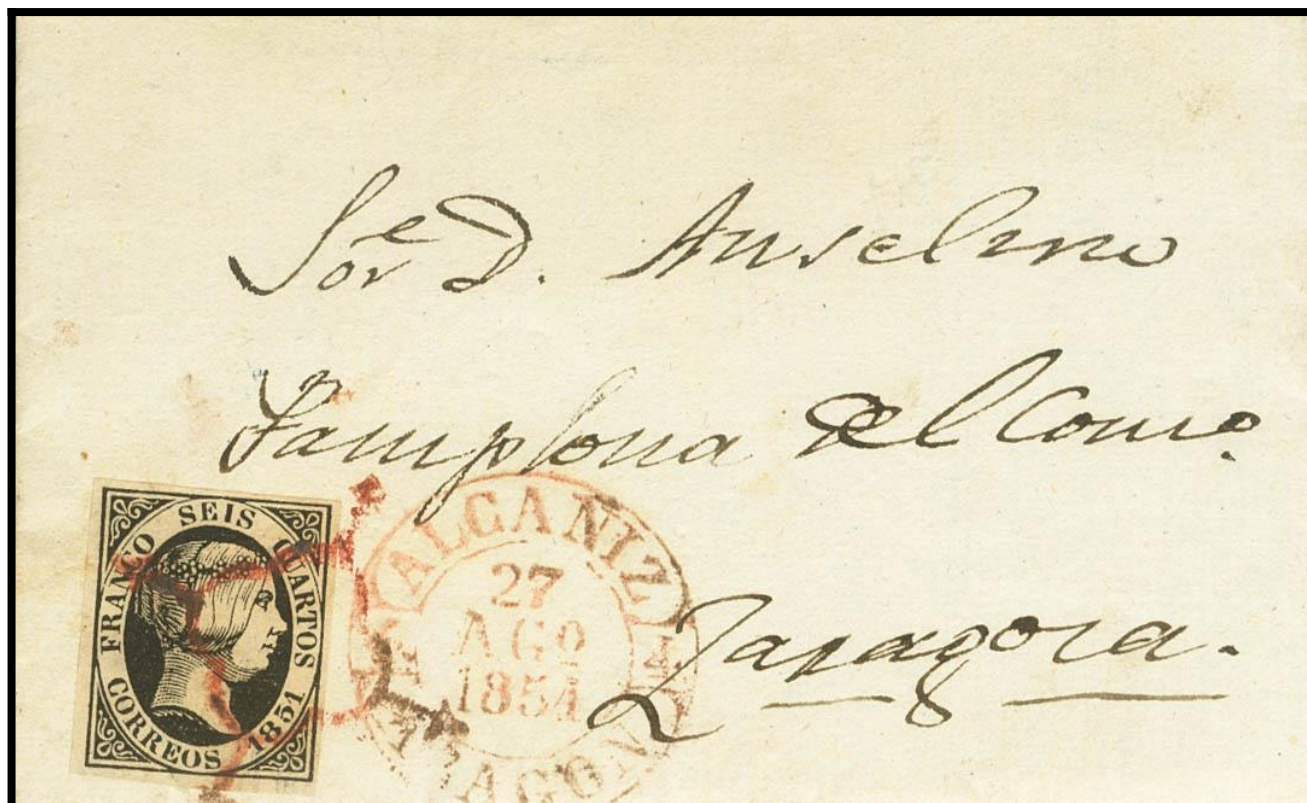 Sor D. Anselmo
Pamplona del Come.
Zaragoza.
FRANCO SEIS CUARTOS
CORREOS 1851
ALCANIZ
27
AGO
1851
ARAGON